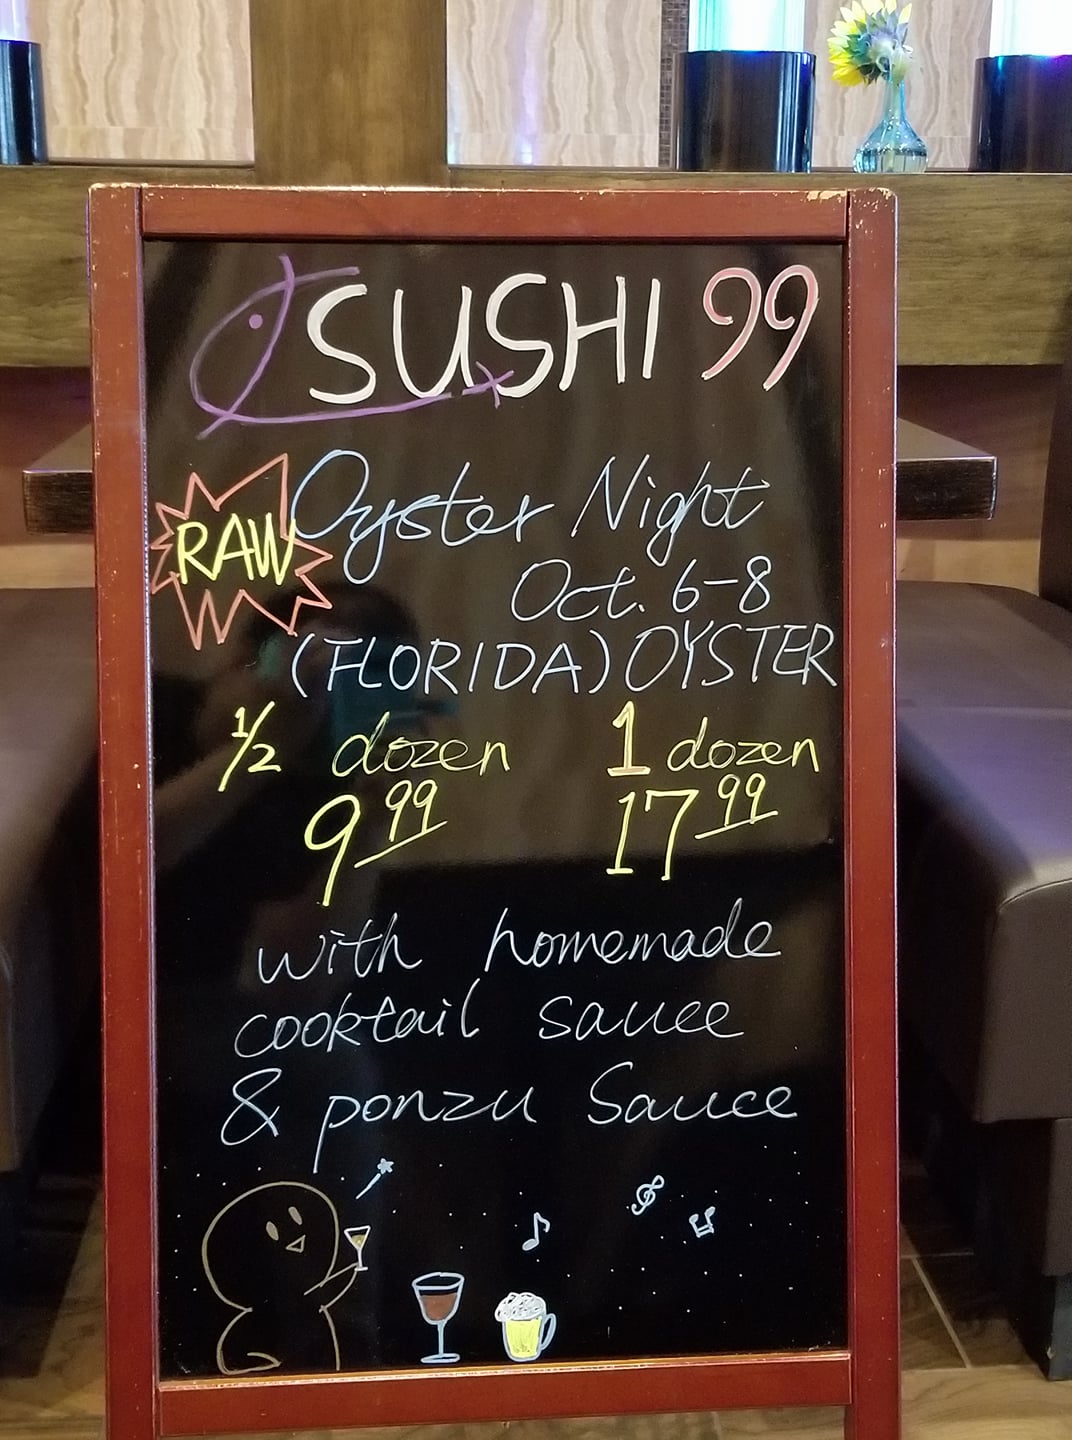 SUSHI 99
RAW Oyster Night
Oct. 6-8
(FLORIDA) OYSTER
1/2 dozen 1 dozen
9.99 17.99
with homemade
cooktail sauce
& ponzu Sauce